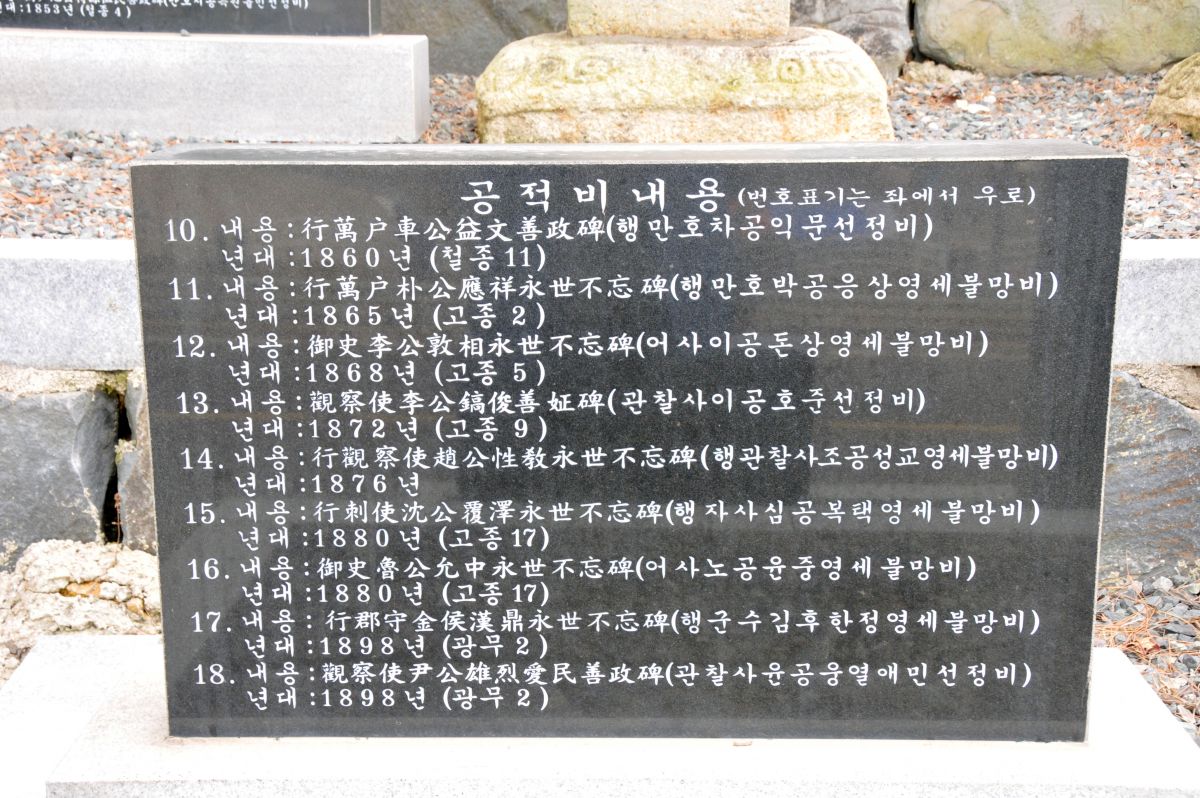 년대:1853년 (철종 4)
공적비내용 (번호표기는 좌에서 우로)
10. 내용:行萬户車公益文善政碑(행만호차공익문선정비)
년대:1860년 (철종 11)
11. 내용:行萬户朴公應祥永世不忘碑(행만호박공응상영세불망비)
년대:1865년 (고종 2)
12. 내용:御史李公敦相永世不忘碑(어사이공돈상영세불망비)
년대:1868년 (고종 5)
13. 내용:觀察使李公鎬俊善姃碑(관찰사이공호준선정비)
년대:1872년 (고종 9)
14. 내용:行觀察使趙公性敎永世不忘碑(행관찰사조공성교영세불망비)
년대:1876년
15. 내용:行刺使沈公覆澤永世不忘碑(행자사심공복택영세불망비)
년대:1880년 (고종 17)
16. 내용:御史魯公允中永世不忘碑(어사노공윤중영세불망비)
년대:1880년 (고종 17)
17. 내용: 行郡守金侯漢鼎永世不忘碑(행군수김후한정영세불망비)
년대:1898년 (광무 2)
18. 내용:觀察使尹公雄烈愛民善政碑(관찰사윤공웅열애민선정비)
년대:1898년 (광무 2)